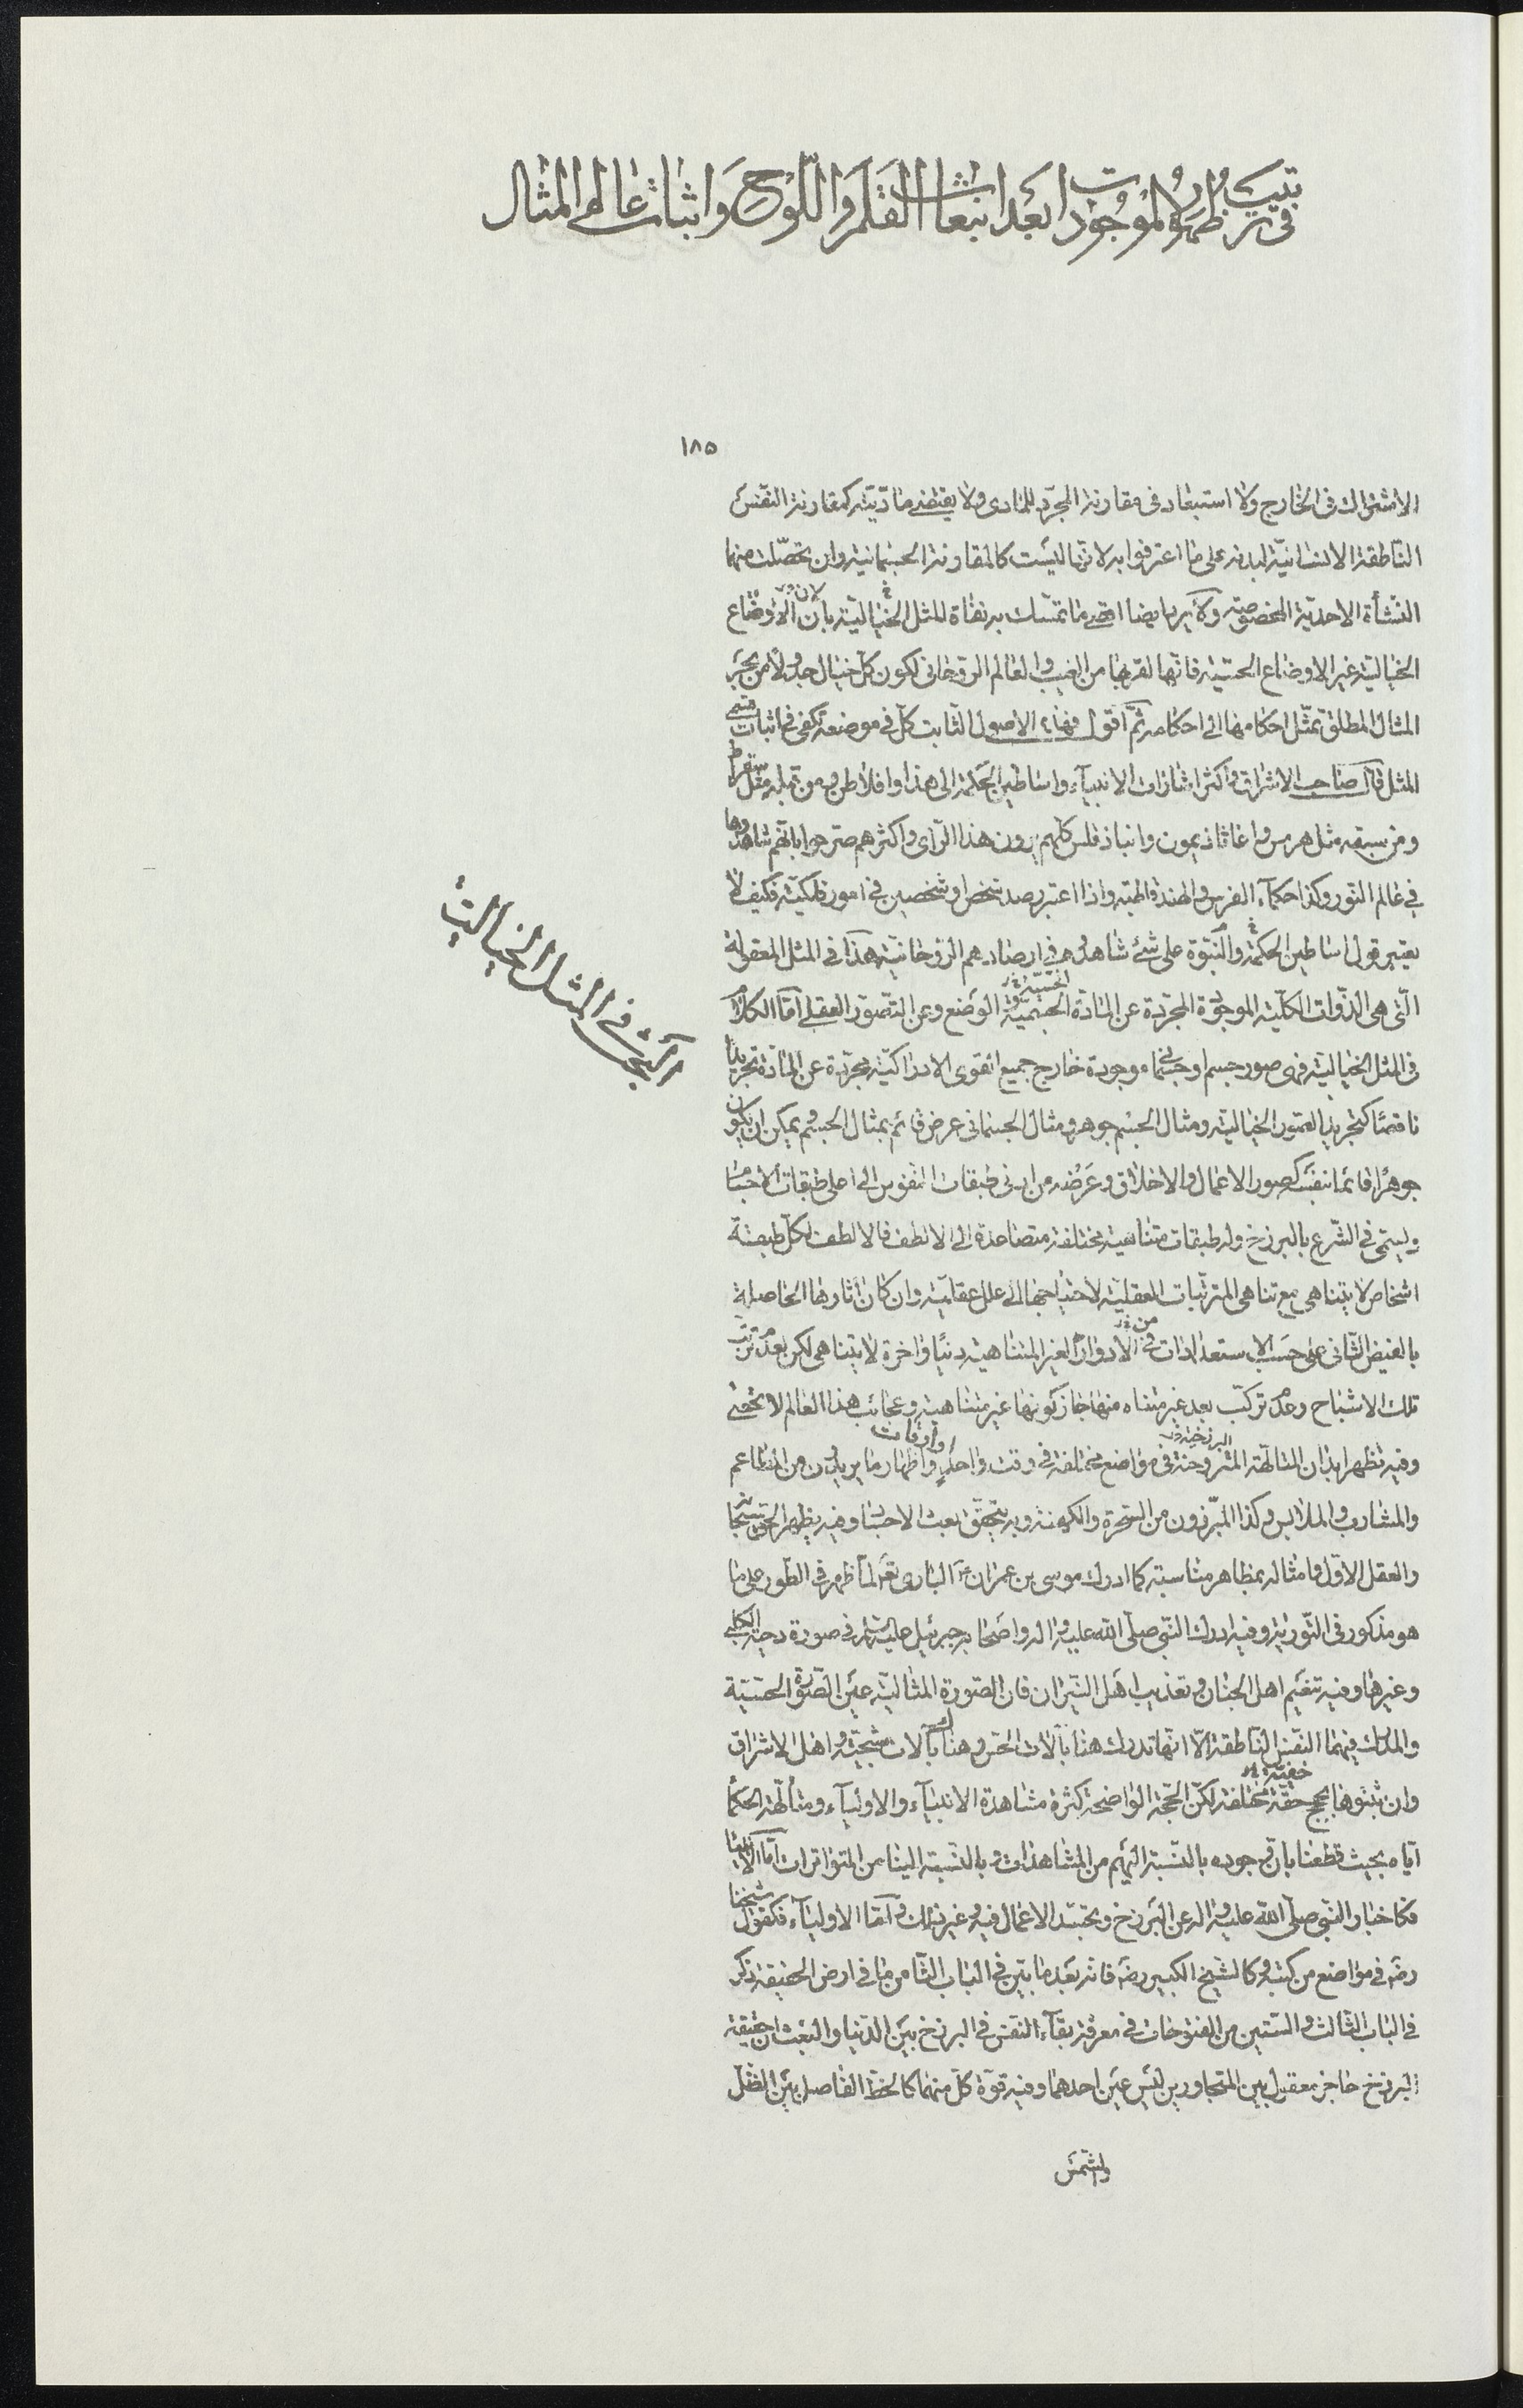 في ترتيب ظهور الموجودات بعد انبعاث القلم واللوح واثبات عالم المثال
١٨٥
الاشتراك فى الخارج ولا استبعاد فى مقارنة المجرّد للمادى ولا يقتضى مادّيته كمقارنة النفس
النّاطقة الانسانيّة لبدنه على ما اعترفوا به لانّها ليست كالمقارنة الجسمانية وان تحصّلت منهما
النشأة الاحديّة المخصوصة ايضا ما تمسّك به نفاة المثل الخياليّة بانّ الاوضاع
الخياليّة غير الاوضاع الحسّيّة فانّها لقربها من الغيب والعالم الرّوحانى لكون كلّ خيال جدولا من بحر
المثال المطلق تمثّل احكامها الى احكامه ثمّ اقول فهذه الاصول الثابت كلّ فى موضعه تكفى فى اثبات قسمى
المثل قال صاحب الاشراق واكثر اشارات الانبياء واساطين الحكمة الى هذا وافلاطن ومن قبله مثل سقراط
ومن سبقه مثل هرمس واغاثاذيمون وانباذقلس كلّهم يرون هذا الرّأى واكثرهم صرّحوا بانّهم شاهدوها
فى عالم النّور وكذا حكماء الفرس والهند قاطبة واذا اعتبر رصد شخص او شخصين فى امور فلكيّة فكيف لا
يعتبر قول اساطين الحكمة والنّبوّة على شئ شاهدوه فى ارصادهم الرّوحانيّة هذا فى المثل المعقولة
الّتى هى الذّوات الكلّيّة الموجودة المجرّدة عن المادّة الجسميّة الحسّيّة الوضع وعن التّصوّر العقلى امّا الكلام
فى المثل الخياليّة فهى صور جسم او جسمانى موجودة خارج جميع القوى الادراكيّة مجرّدة عن المادّة تجريدا
ناقصًا كتجريد الصّور الخياليّة ومثال الجسم جوهر ومثال الجسمانى عرض قائم بمثال الجسم ويمكن ان يكون
جوهرًا قائما بنفسه كصور الاعمال والاخلاق وعَرْضُه من ادنى طبقات النفوس الى اعلى طبقات الاجسام
ويسمّى فى الشّرع بالبرزخ وله طبقات متناهية مختلفة متصاعدة الى الالطف فالالطف لكلّ طبقة
اشخاص لا يتناهى مع تناهى المترتّبات العقليّة لاحتياجها الى علل عقليّة وان كان اثارها الحاصلة
بالفيض الثانى على حسب الاستعدادات من فى الادوار الغير المتناهية دنيًا واخرة لا يتناهى لكن بعدم ترتّب
تلك الاشباح وعدم تركّب بعد غير متناه منها جاز كونها غير متناهية وعجائب هذا العالم لا تحصى
وفيه تظهر ابدان المتألّهة المتروحنة البرزخيّة فى مواضع مختلفة فى وقت واحد او اوقات واظهار ما يريدون من المطاعم
والمشارب والملابس وكذا المبرّزون من السّحرة والكهنة وبه يتحقّق بعث الاجساد وفيه يظهر الحق سبحانه
والعقل الاوّل وامثاله بمظاهر مناسبة كما ادرك موسى بن عمران ع البارى تعَ لمّا ظهر فى الطّور على ما
هو مذكور فى التّورية وفيه ادرك النّبى صلّى اللّه عليه وآله واصحابه جبرئيل عليه السلام فى صورة دحية الكلبى
وغيرها وفيه تنعّم اهل الجنان وتعذيب اهل النّيران فان الصّورة المثاليّة عين الصّورة الحسّيّة
والمدرك فيهما النّفس النّاطقة الّا انّها تدرك هنا بآلات الحسّ وهناك بآلات شبحيّة واهل الاشراق
وان ثبّتوها بحجج حقّة خفيّة مختلفة لكنّ الحجّة الواضحة كثرة مشاهدة الانبياء والاولياء ومتألّهة الحكماء
ايّاه بحيث قطعنا بانّ وجوده بالنّسبة اليهم من المشاهدات وبالنّسبة الينا من المتواترات امّا الانبياء
فكاخبار النّبى صلّى اللّه عليه وآله عن البرزخ وتجسّد الاعمال فيه وغير ذلك وامّا الاولياء فكقول شيخنا
رضه فى مواضع من كتبه وكالشّيخ الكبير رضه فانه بعد ما بيّن فى الباب الثّامن ما فى ارض الحقيقة ذكر
فى الباب الثّالث والستّين من الفتوحات فى معرفة بقاء النفس فى البرزخ بين الدّنيا والبعث ان حقيقة
البرزخ حاجز معقول بين المتجاورين ليس عين احدهما وفيه قوّة كلّ منهما كالخطّ الفاصل بين الظلّ
والشّمس
البحث فى المثل الخياليّة